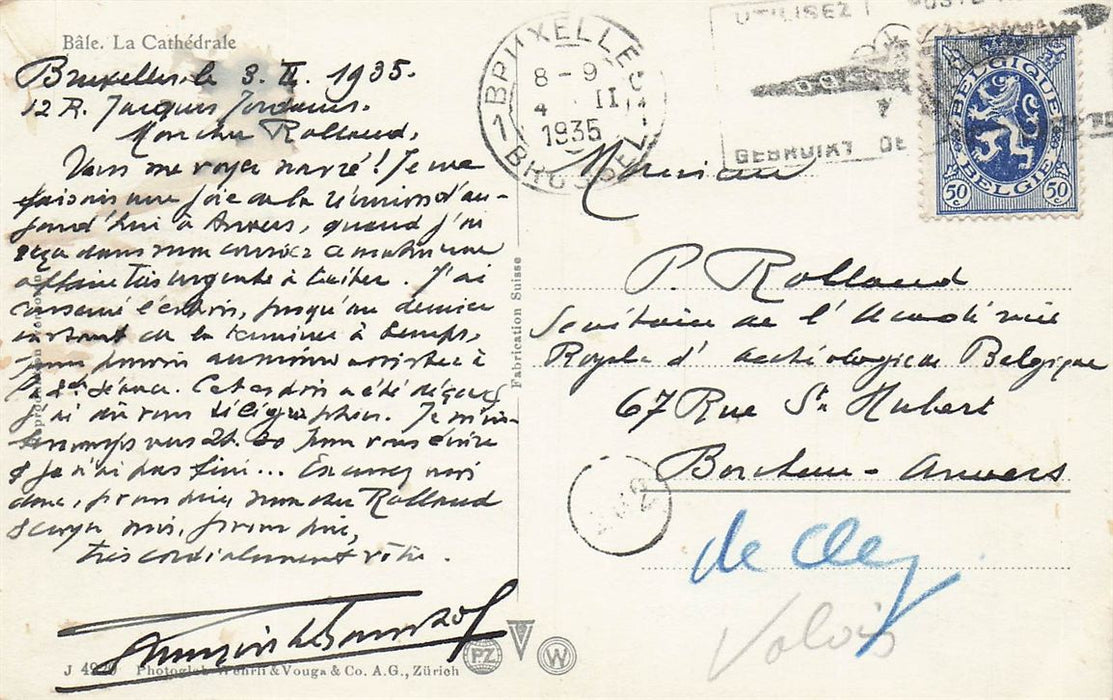 Bâle. La Cathédrale
Bruxelles, le 3. II. 1935.
12 R. Jacques Jordaens.
Mon cher Rolland,
Vous me voyez navré! Je me
faisais une joie de la réunion d'au-
jourd'hui à Anvers, quand j'ai
reçu dans mon courrier ce matin une
affaire très urgente à traiter. J'ai
conservé l'espoir, jusqu'au dernier
instant de la terminer à temps,
pour pouvoir au moins assister à
la séance. Cet espoir a été déçu &
j'ai dû vous télégraphier. Je m'in-
terromps vers 2h. 30 pour vous écrire
& je n'ai pas fini... Excusez moi
donc, je vous prie, mon cher Rolland
& croyez moi, je vous prie,
très cordialement vôtre.
J Photoglob-Wehrli & Vouga & Co. A.G., Zürich
PZ
W
Fabrication Suisse
BRUXELLES
8-9
4 II
1935
1 BRUSSEL 1
UTILISEZ
GEBRUIKT DE
BELGIQUE
BELGIE
50 c
50 c
Monsieur
P. Rolland
Secrétaire de l'Académie
Royale d'archéologie de Belgique
67 Rue St Hubert
Borcheur - Anvers
de Cley
Valois